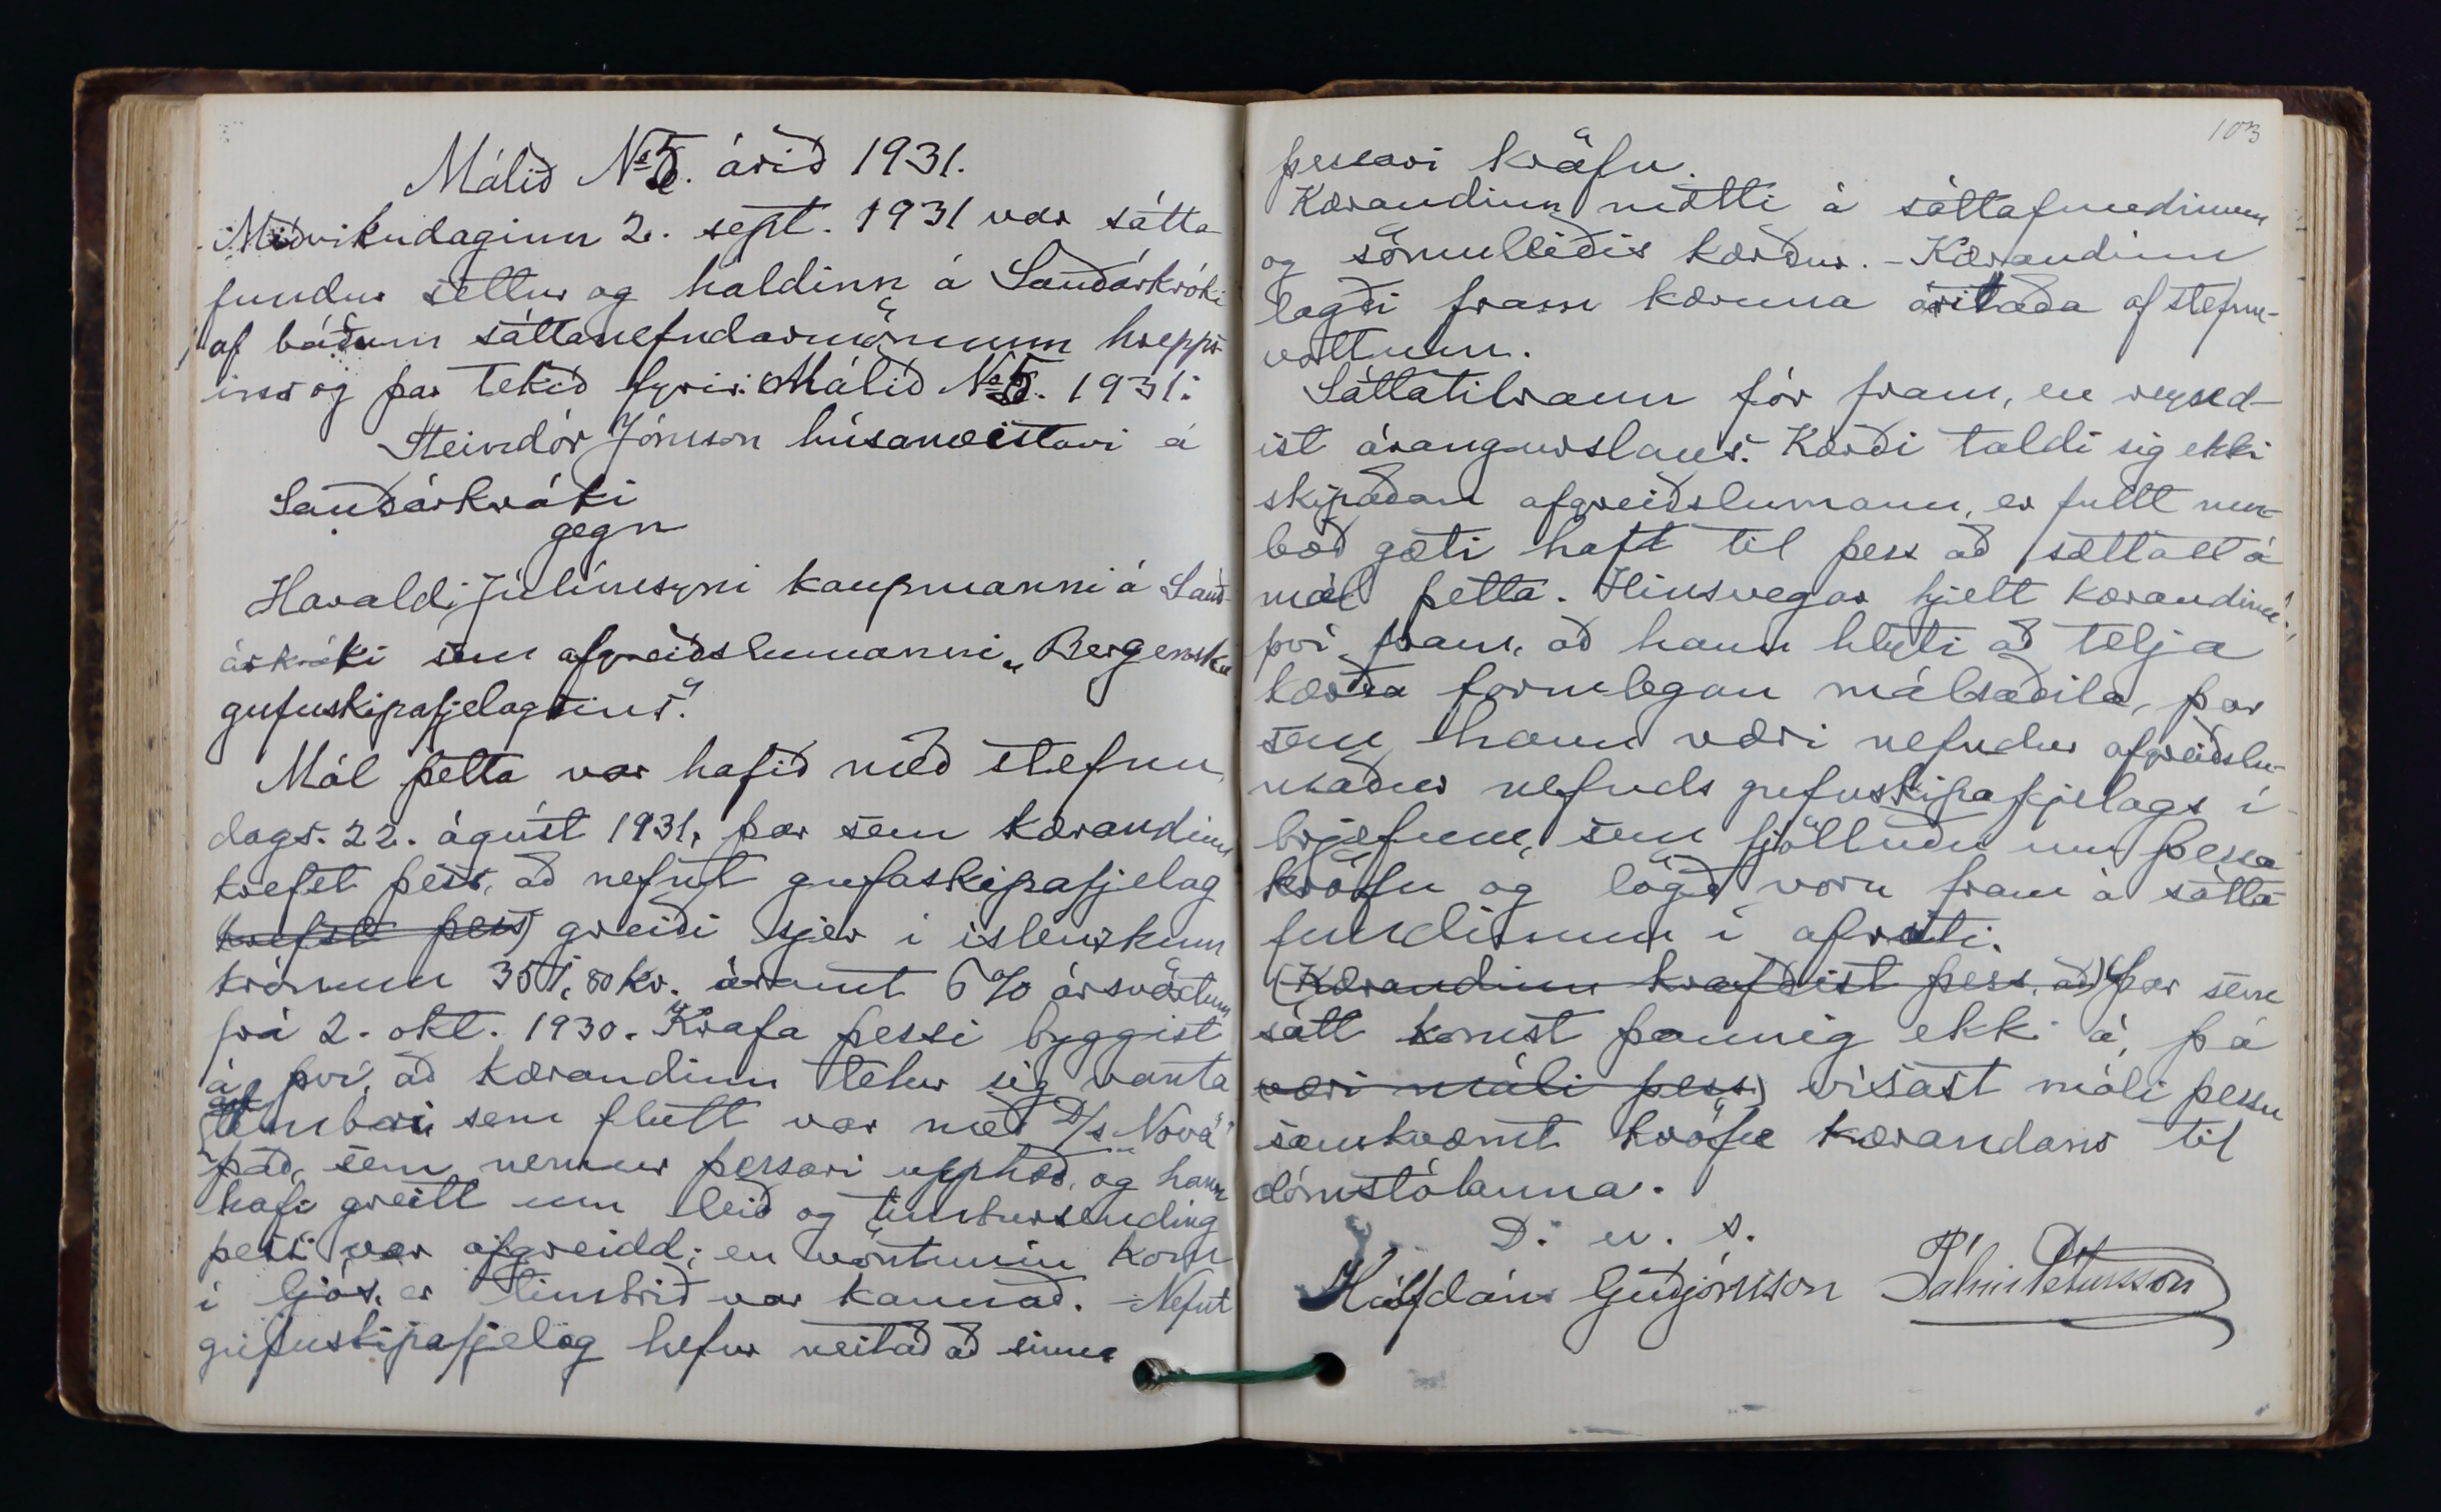 Málið No 5. árið 1931.
Miðvikudaginn 2. sept. 1931 var sátta-
fundur settur og haldinn á Sauðárkróki
af báðum sáttanefndarmönnum hrepps-
ins og þar tekið fyrir: Málið No 5. 1931:
Steindór Jónsson húsameistari á
Sauðárkróki
gegn
Haraldi Júlíussyni kaupmanni á Sauð-
árkróki sem afgreiðslumanni „Bergenska
gufuskipafjelagsins“.
Mál þetta var hafið með stefnu,
dags. 22. ágúst 1931, þar sem kærandinn
krefst þess, að nefnt gufuskipafjelag
krefst þess) greiði sjer í íslenzkum
krónum 351,80 kr. ásamt 6% ársvöxtum
frá 2. okt. 1930. Krafa þessi byggist
á því, að kærandinn telur sig vanta
af timbri sem flutt var með D/s „Nova“
það, sem nemur þessari upphæð, og hann
hafi greitt um leið og timbursending
þessi var afgreidd; en vöntunin kom
í ljós, er timbrið var kannað. - Nefnt
gufuskipafjelag hefur neitað að sinna
103
þessari kröfu.
Kærandinn mætti á sáttafundinum
og sömuleiðis kærður. - Kærandinn
lagði fram kæruna áritaða af stefnu-
vottunum.
Sáttatilraun fór fram, en reynd-
ist árangurslaus. Kærði taldi sig ekki
skipaðan afgreiðslumann, er fullt um-
boð gæti haft til þess að sættast á
mál þetta. Hinsvegar hjelt kærandinn
því fram, að hann hlyti að telja
kærða formlegan málsaðila, þar
sem hann væri nefndur afgreiðslu-
maður nefnds gufuskipafjelags í
brjefum, sem fjölluðu um þessa
kröfu og lögð voru fram á sátta-
fundinum í afriti.
(Kærandinn krafðist þess, að) Þar sem
sátt komst þannig ekki á, þá
væri máli þess) vísast máli þessu
samkvæmt kröfu kærandans til
dómstólanna.
D. u. s.
Hálfdán Guðjónsson Pálmi Pétursson